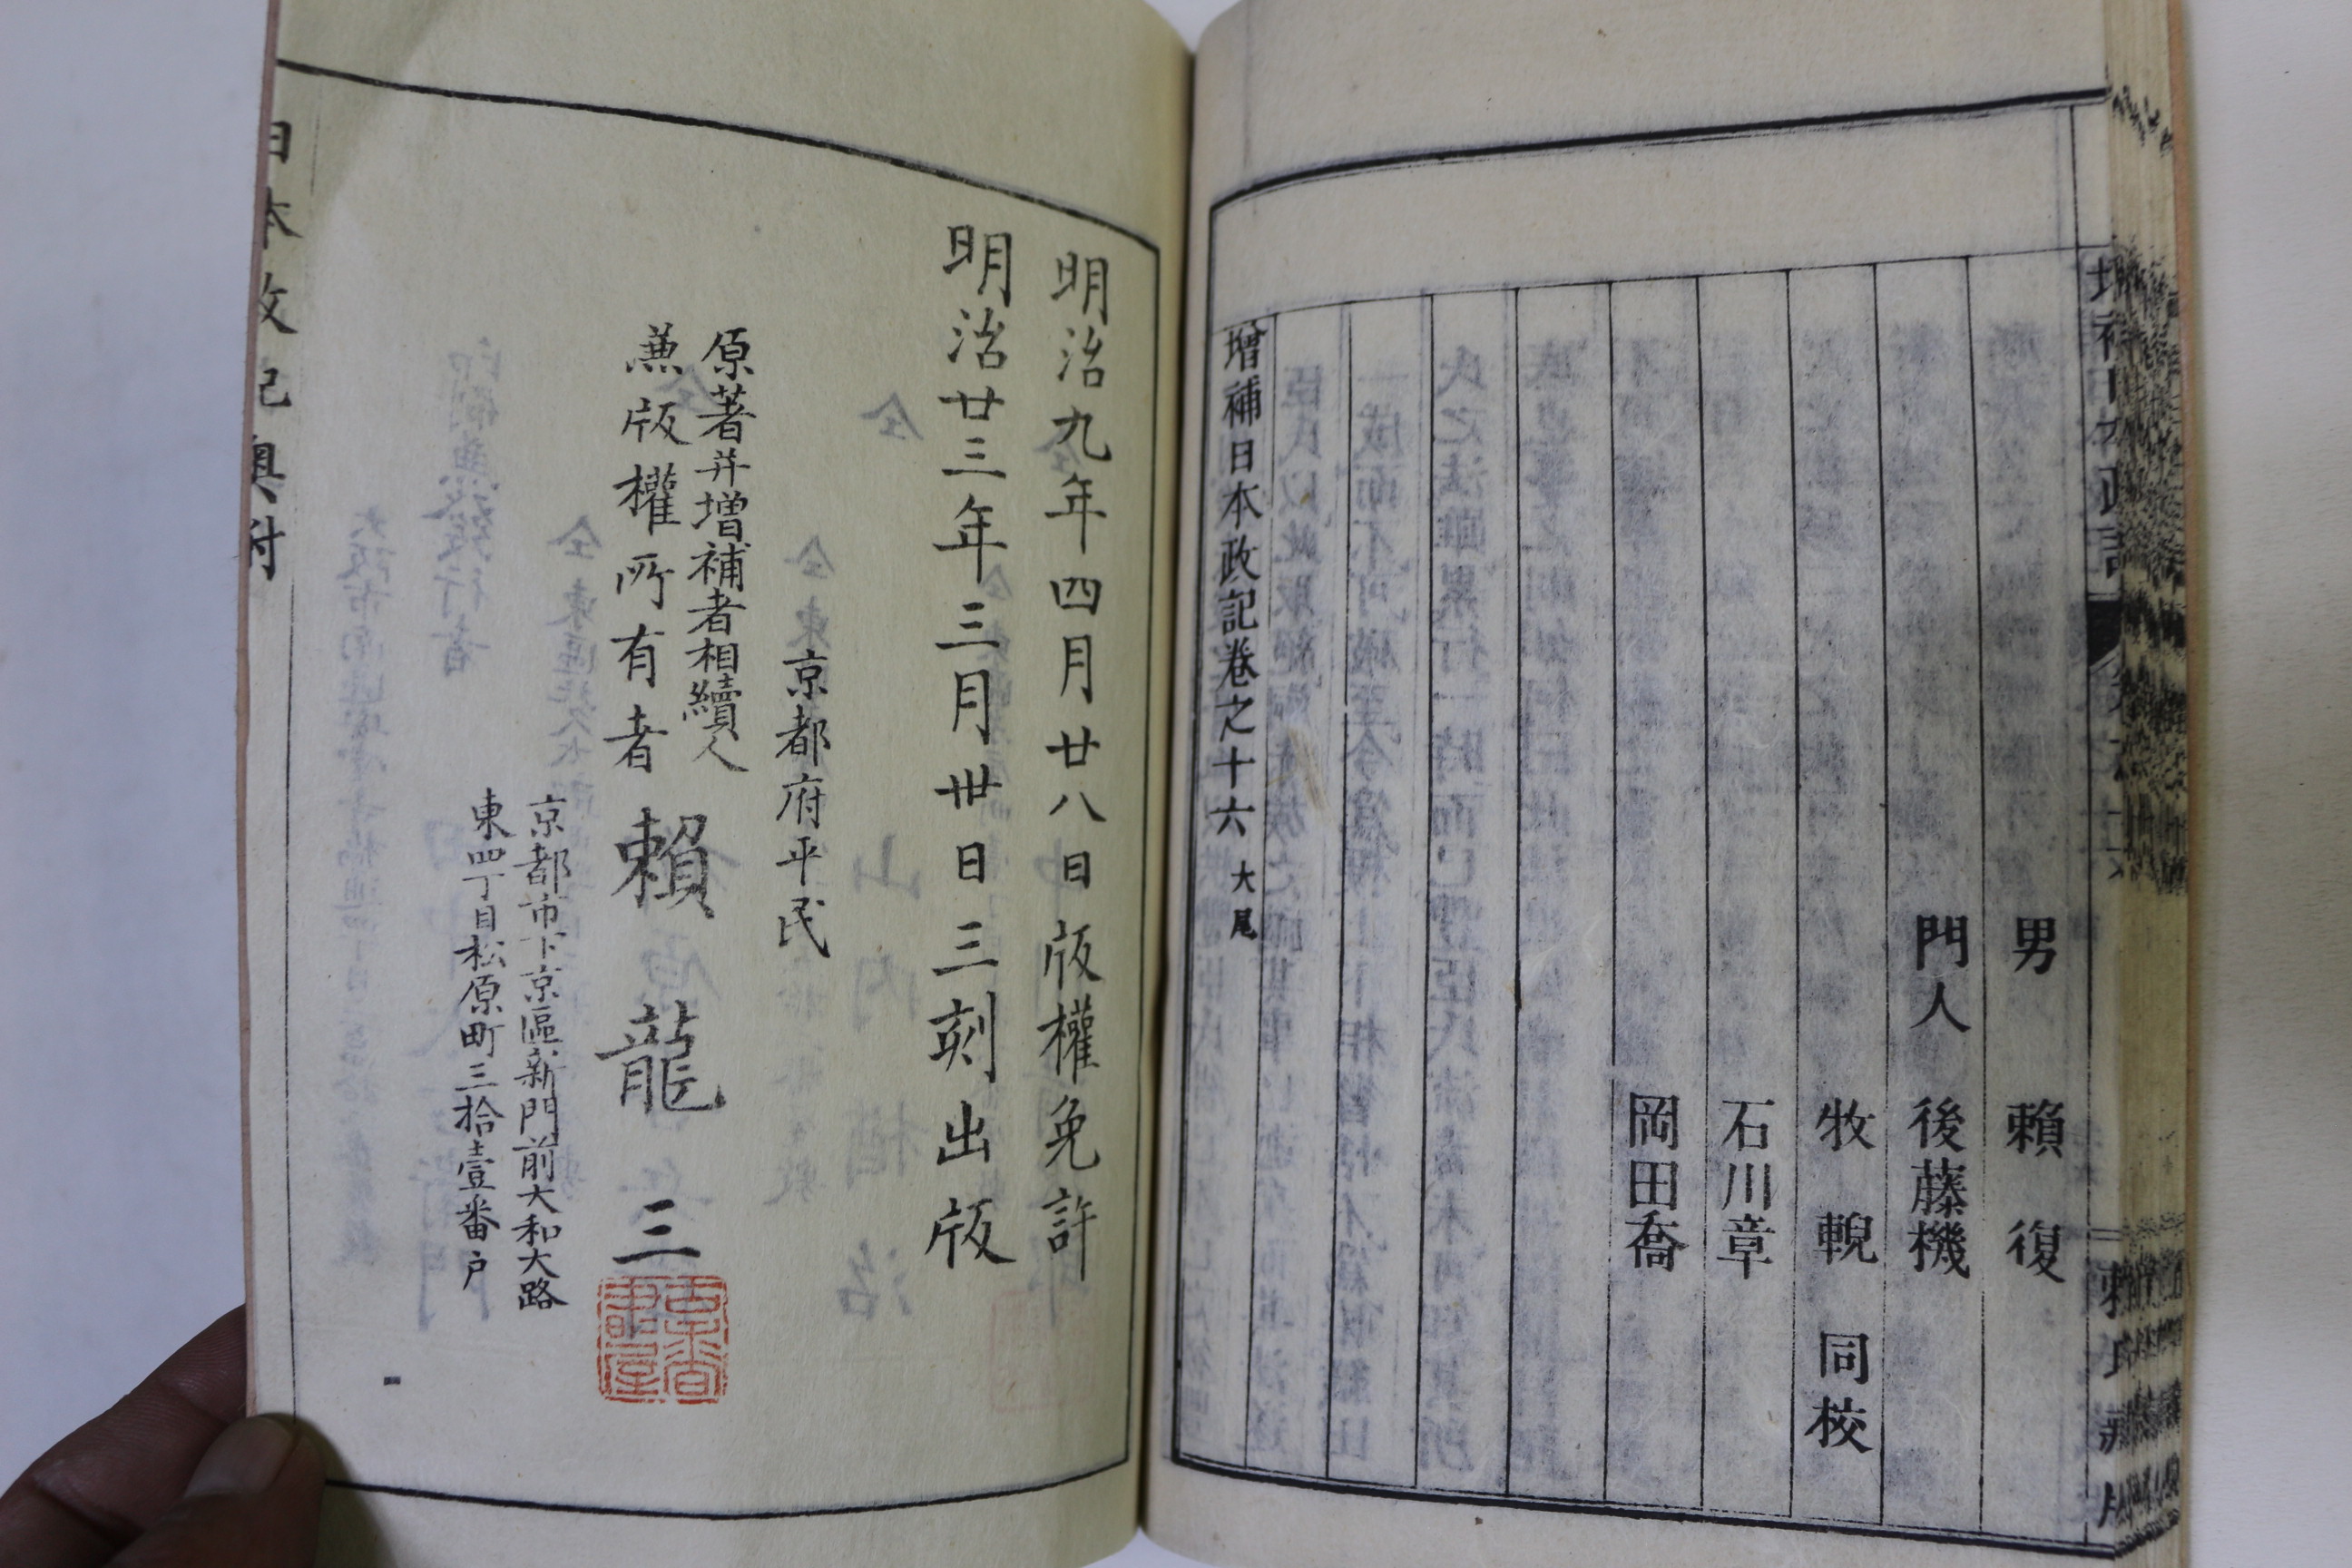 男 賴 復
門人 後藤機
牧 輗 同校
石川章
岡田喬
增補日本政記卷之十六 大尾
明治九年四月廿八日版權免許
明治廿三年三月卅日三刻出版
京都府平民
原著并増補者相續人
兼版權所有者
賴龍三
京都市下京區新門前大和大路
東四丁目松原町三拾壹番戶
日本政記奥附